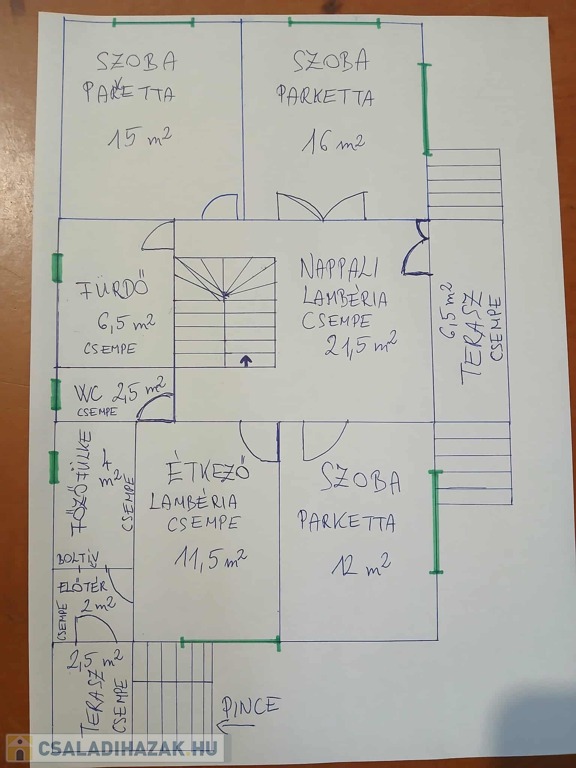 SZOBA
PARKETTA
15 m²
SZOBA
PARKETTA
16 m²
FÜRDŐ
6,5 m²
CSEMPE
NAPPALI
LAMBÉRIA
CSEMPE
21,5 m²
6,5 m²
TERASZ
CSEMPE
WC 2,5 m²
CSEMPE
FŐZŐFÜLKE
4 m²
CSEMPE
BOLTÍV
ÉTKEZŐ
LAMBÉRIA
CSEMPE
11,5 m²
SZOBA
PARKETTA
12 m²
ELŐTÉR
2 m²
CSEMPE
2,5 m²
TERASZ
CSEMPE
PINCE
CSALADIHAZAK.HU